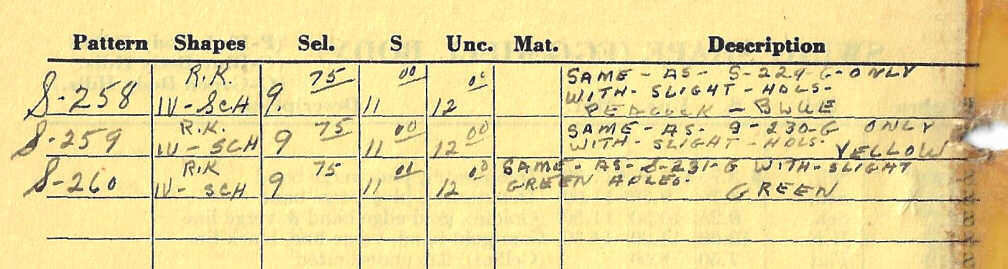 Pattern Shapes Sel. S Unc. Mat. Description
S-258 R.K. IV-SCH 9.75 11 00 12 00 SAME-AS-S-229-G-ONLY
WITH-SLIGHT-HOLS-
PEACOCK-BLUE
S-259 R.K. IV-SCH 9 75 11 00 12 00 SAME-AS-S-230-G ONLY
WITH-SLIGHT-HOLS- YELLOW
S-260 R.K IV-SCH 9 75 11 00 12 00 SAME-AS-S-231-G WITH-SLIGHT
GREEN HOLES-
GREEN